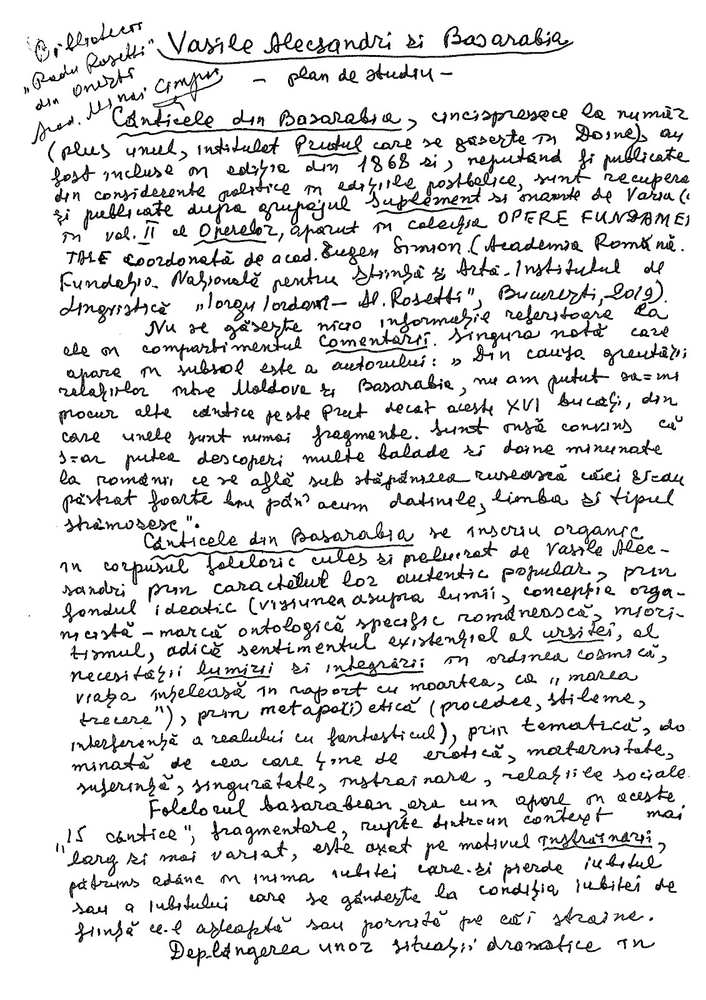 Bibliotecii
"Radu Rosetti"
din Onești
Acad. Mihai Cimpoi
Vasile Alecsandri și Basarabia
- plan de studiu -
Cânticele din Basarabia, cincisprezece la număr
(plus unul, intitulat Prutul care se găsește în Doine), au
fost incluse în ediția din 1868 și, neputând fi publicate
din considerente politice în edițiile postbelice, sunt recupera
și publicate după grupajul Suplement și înainte de Varia (
în vol. II al Operelor, apărut în colecția OPERE FUNDAMEN
TALE coordonată de acad. Eugen Simion (Academia Română.
Fundația Națională pentru Știință și Artă - Institutul de
Lingvistică "Iorgu Iordan - Al. Rosetti", București, 2019).
Nu se găsește nicio informație referitoare la
ele în compartimentul Comentarii. Singura notă care
apare în subsol este a autorului: „Din cauza greutății
relațiilor între Moldova și Basarabia, nu am putut sa=mi
procur alte cântice peste Prut decât aceste XVI bucăți, din
care unele sunt numai fragmente. Sunt însă convins că
s=ar putea descoperi multe balade și doine minunate
la românii ce se află sub stăpânirea rusească căci și=au
păstrat foarte bine păn' acum datinile, limba și tipul
strămoșesc".
Cânticele din Basarabia se înscriu organic
în corpusul folcloric cules și prelucrat de Vasile Alec-
sandri prin caracterul lor autentic popular, prin
fondul ideatic (viziunea asupra lumii, concepția orga-
nicistă - marcă ontologică specific românească, miori-
tismul, adică sentimentul existențial al ursitei, al
necesității lumirii și integrării în ordinea cosmică,
viața înțeleasă în raport cu moartea, ca „marea
trecere"), prin metapo(i)etică (procedee, stileme,
interferență a realului cu fantasticul), prin tematică, do
minată de cea care ține de erotică, maternitate,
suferință, singurătate, înstrăinare, relațiile sociale.
Folclorul basarabean, așa cum apare în aceste
"15 cântice", fragmentare, rupte dintr-un context mai
larg și mai variat, este axat pe motivul înstrăinării,
pătruns adânc în inima iubitei care-și pierde iubitul
sau a iubitului care se gândește la condiția iubitei de
ființă ce-l așteaptă sau pornită pe căi străine.
Deplângerea unor situații dramatice în